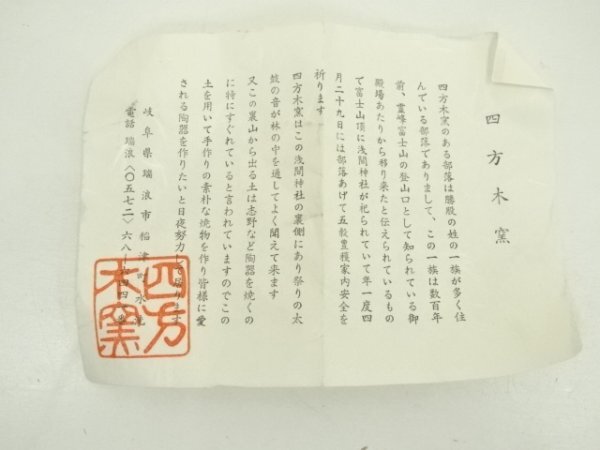 四方木窯
四方木窯のある部落は勝股の姓の一族が多く住
んでいる部落でありまして、この一族は数百年
前、霊峰富士山の登山口として知られている御
殿場あたりから移り来たと伝えられているもの
で富士山頂に浅間神社が祀られていて年一度四
月二十九日には部落あげて五穀豊穣家内安全を
祈ります
四方木窯はこの浅間神社の裏側にあり祭りの太
鼓の音が林の中を通してよく聞えて来ます
又この裏山から出る土は志野など陶器を焼くの
に特にすぐれていると言われていますのでこの
土を用いて手作りの素朴な焼物を作り皆様に愛
される陶器を作りたいと日夜努力して居ります
岐阜県瑞浪市稲津町
電話 瑞浪〈〇五七二〉六八
四方
木窯